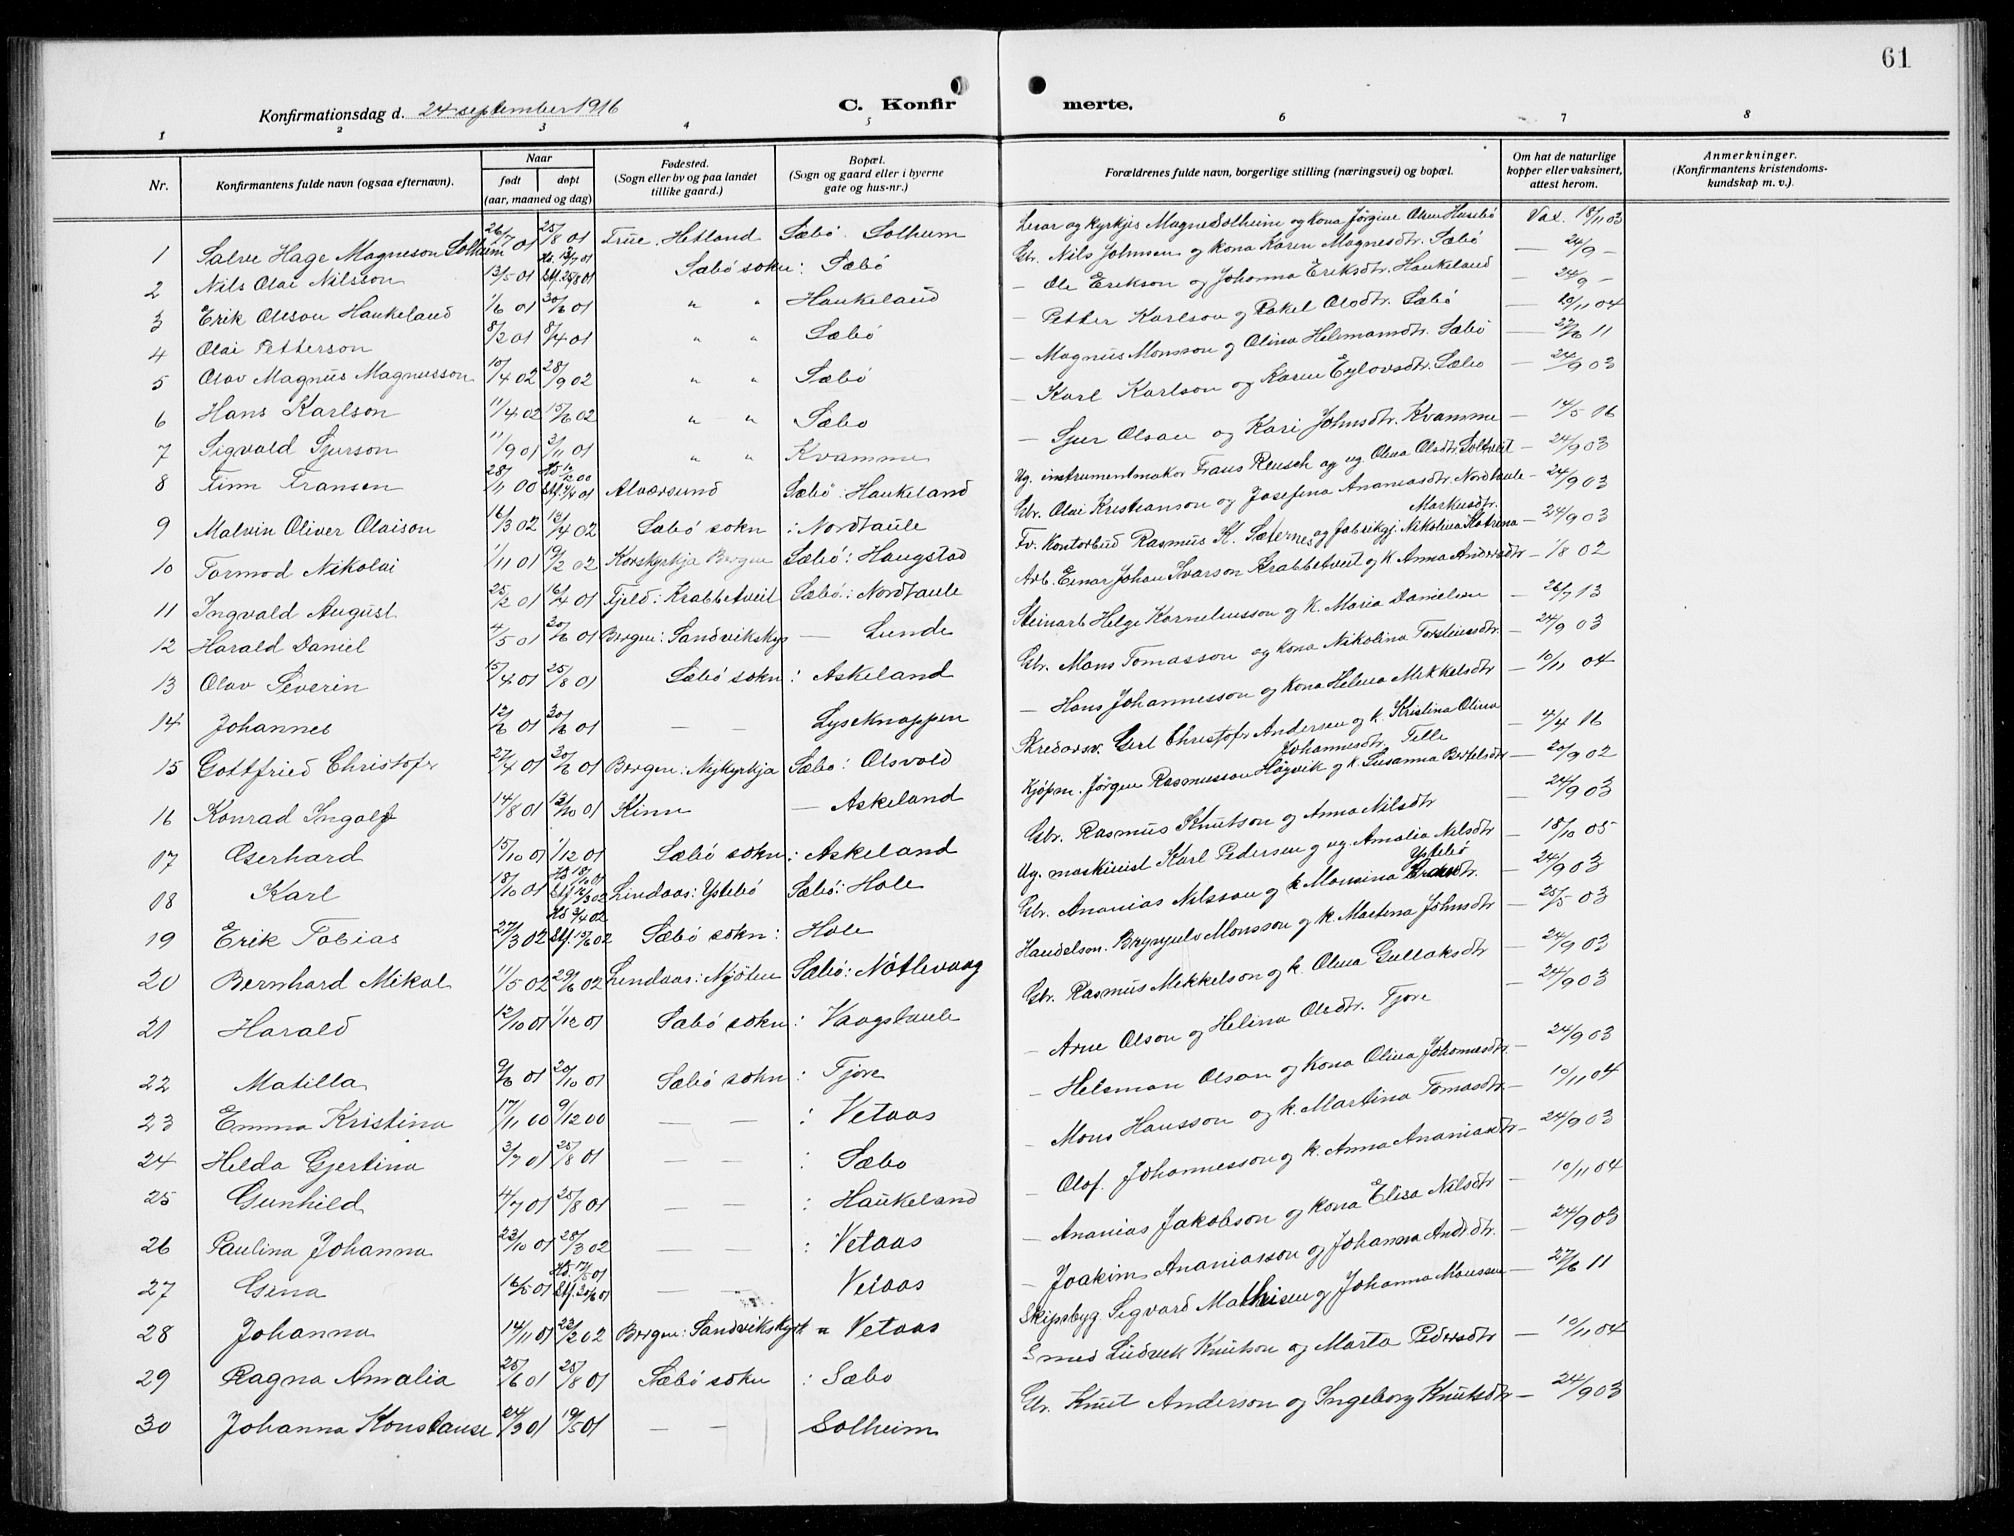 61
Konfirmationsdag d. 24 september 1916
C. Konfir merte.
1 2 3 4 5 6 7 8
Nr. Konfirmantens fulde navn (ogsaa efternavn). Naar født døpt (aar, maaned og dag) Fødested. (Sogn eller by og paa landet tillike gaard.) Bopæl. (Sogn og gaard eller i byerne gate og hus-nr.) Forældrenes fulde navn, borgerlige stilling (næringsvei) og bopæl. Om hat de naturlige kopper eller vaksinert, attest herom. Anmerkninger. (Konfirmantens kristendoms-kundskap m. v.).
1 Salve Hage Magneson Solheim 26/7 01 25/8 01 Time. Hetland Sæbö. Solheim Lærar og kyrkjes Magne Solheim og kona Jörgine Olsen Husebö Vax. 18/11 03
2 Nils Olai Nilsson 13/5 01 Hd. 13/7 01 Stf. 25/8 01 Sæbö sokn : Sæbö Gbr. Nils Johnsen og kona Karen Magnesdtr. Sæbö — 24/9 —
3 Erik Oleson Haukeland 1/6 01 30/6 01 " " Haukeland — Ole Erikson og Johanna Eriksdtr. Haukeland — 24/9 —
4 Olai Petterson 8/2 01 8/4 01 " " Sæbö — Petter Karlson og Rakel Olsdtr. Sæbö — 10/11 04
5 Olav Magnus Magnusson 10/4 02 28/9 02 " " Sæbö — Magnus Monsson og Olina Helsmansdtr. Sæbö — 27/6 11
6 Hans Karlson 11/4 02 15/6 02 " " Sæbo — Karl Karlson og Karen Eylovsdtr. Sæbo — 24/9 03
7 Sigvald Sjurson 11/9 01 3/11 01 " " Kvamme — Sjur Olsen og Kari Johnsdtr. Kvamme — 14/5 06
8 Finn Fransen 28/11 00 Alværsund Sæbö : Haukeland Ug. instrumentmakor Frans Reusch og ug Olina Olsdtr. Soltveit — 24/9 03
9 Malvin Oliver Olaison 16/3 02 13/4 02 Sæbö sokn : Nordtaule Gbr. Olai Kristianson og Josefina Ananiasdtr. Nordtaule — 24/9 03
10 Tormod Nikolai 1/11 01 19/2 02 Korskyrkja Bergen Sæbö : Haugstad Fv. Kontorbud Rasmus K. Sæternes og fabrikgj. Nikolina Katrina Markusdtr. — 24/9 03
11 Ingvald August 25/2 01 16/4 01 Fjeld : Krabbetveit Sæbö : Nordtaule Arb. Einar Johan Ivarson Krabbetveit og k. Anna Andersdtr — 1/8 02
12 Harald Daniel 4/5 01 30/6 01 Bergen : Sandvikskyr — Lunde Steinarb Helge Korneliusson og k. Maria Danielsen — 26/7 13
13 Olav Severin 15/4 01 25/8 01 Sæbö sokn : Askeland Gbr. Mons Tomasson og kona Nikolina Torsteinsdtr. — 24/9 03
14 Johannes 12/6 01 30/6 01 — — Lyseknappen — Hans Johannesson og kona Helena Mekkelsdtr — 10/11 04
15 Gottfried Christofer 27/4 01 30/6 01 Bergen : Nykyrkja Sæbö : Olsvold Skredarsv. Gerl Christofr Andersen og k. Kristina Olina Johannesdtr. Telle — 4/4 16
16 Konrad Ingolf 14/8 01 13/10 01 Kinn — Askeland Kjöpm. Jörgen Rasmusson Högvik og k. Susanna Bertelsdtr — 20/9 02
17 Gerhard 15/10 01 1/12 01 Sæbö sokn : Askeland Gbr. Rasmus Knutson og Anna Nilsdtr — 24/9 03
18 Karl 18/10 01 Hd 18/10 01 Stf 12/3 02 Lindaas : Ystebö Sæbö : Hole Ug. maskinist Karl Pedersen og ug. Amalia Nilsdtr Ystebö — 18/10 05
19 Erik Tobias 27/3 02 Hd 3/4 02 Stf. 15/6 02 Sæbö sokn : Hole Gbr. Ananias Nilsson og k Monsina — 24/9 03
20 Bernhard Mikal 11/5 02 29/6 02 Lindaas : Mjötem Sæbö : Nöttevaag Handelsm. Brynjulv Monsson og k. Martina Johnsdtr — 25/5 03
21 Harald 12/10 01 1/12 01 Sæbö sokn : Vaagstaule Gbr. Rasmus Mekkelson og k. Olina Gullaksdtr — 24/9 03
22 Matilla 9/8 01 20/10 01 Sæbö sokn : Fjore — Arne Olson og Helina Olsdtr. Fjore — 24/9 03
23 Emma Kristina 17/11 00 9/12 00 — — : Vetaas — Helsman Olson og kona Olina Johannesdtr — 24/9 03
24 Helda Gjertina 3/7 01 25/8 01 — — : Sæbo — Mons Hansson og k. Martina Tomasdtr. — 10/11 04
25 Gunhild 4/7 01 25/8 01 — — : Haukeland — Olof. Johannesson og k. Anna Ananiasdtr — 24/9 03
26 Paulina Johanna 22/10 01 28/3 02 — — : Vetaas — Ananias Jakobson og kona Elisa Nilsdtr — 10/11 04
27 Gina 16/5 01 Hd. 17/5 01 Stf. 30/6 01 — — Vetaas — Joakim Ananiasson og Johanna Andr.dtr. — 24/9 03
28 Johanna 14/11 01 23/2 02 Bergen : Sandvikskyrk " Vetaas Skipsbyg. Sigvard Mathisen og Johanna Monssen — 27/6 11
29 Ragna Amalia 25/6 01 25/8 01 Sæbö sokn : Sæbo Smed Ludvik Knutson og Marta Pedersdtr — 10/11 04
30 Johanna Konstanse 24/3 01 19/5 01 — — Solheim Gbr. Knut Anderson og Ingeborg Knutsdtr — 24/9 03